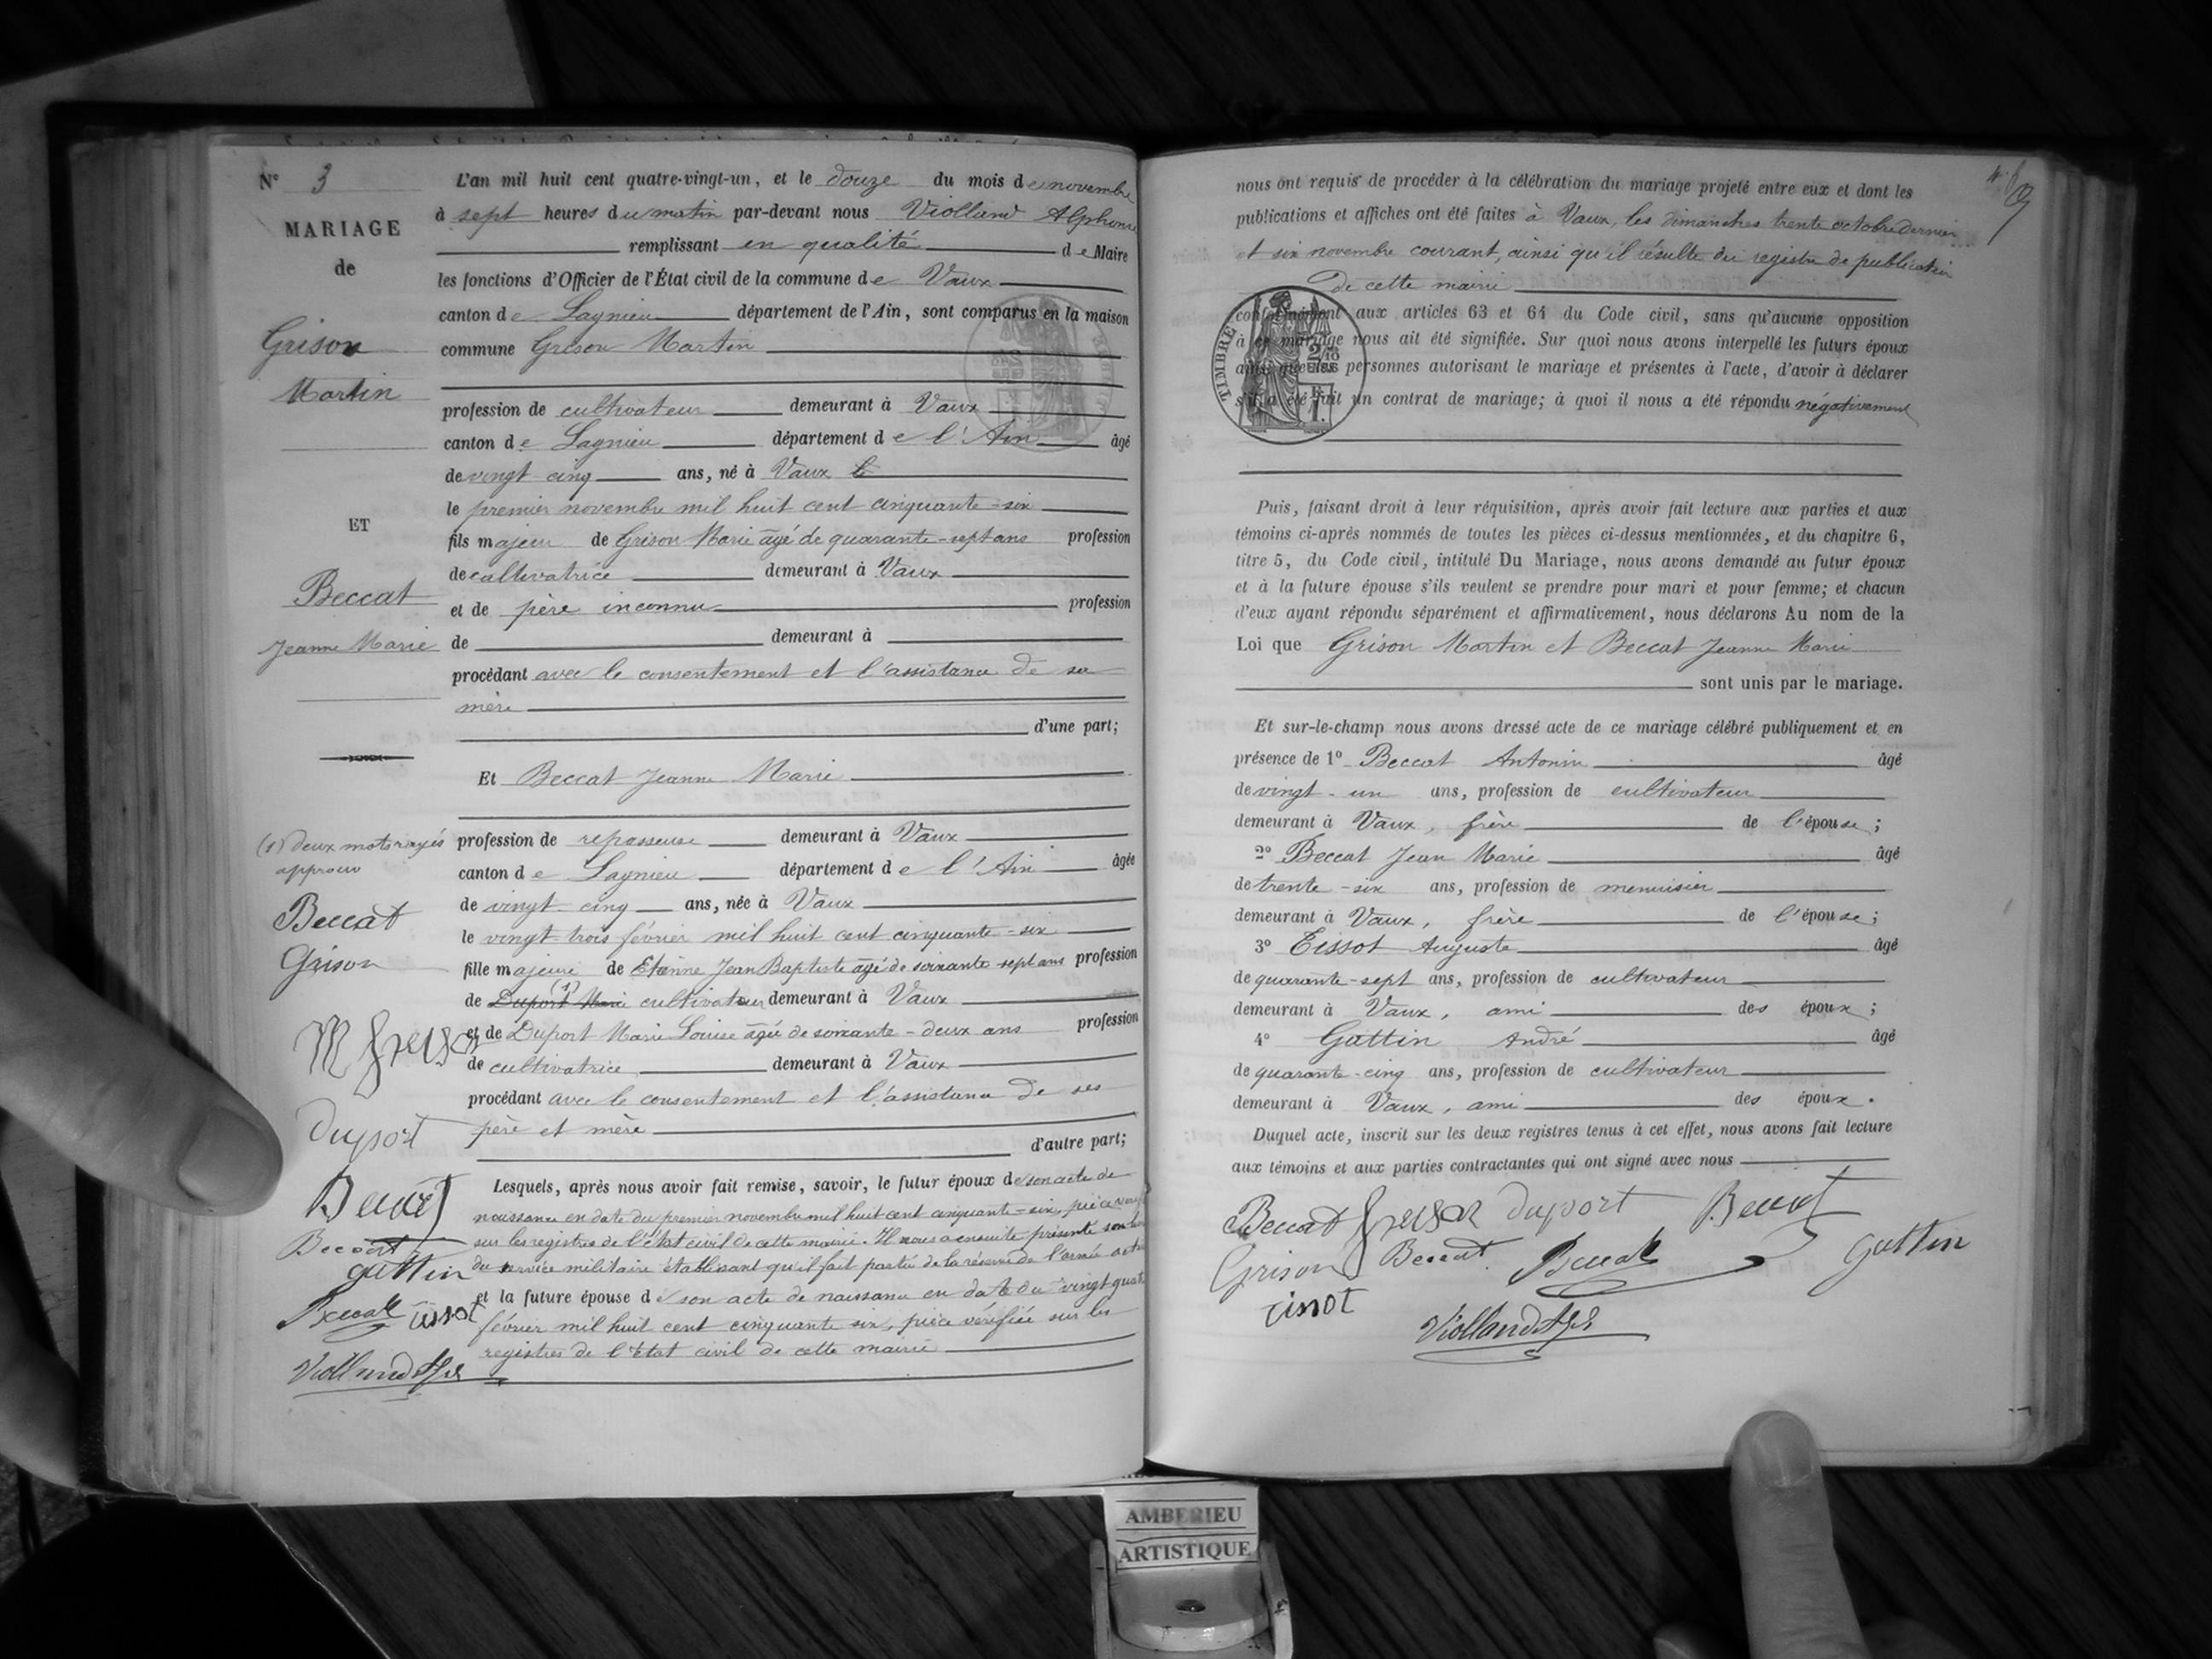 N° 3
MARIAGE
de
Grison
Martin
ET
Beccat
Jeanne Marie
(1) deux mots rayés
approuv
Beccat
Grison
M Greison
Duport
Beccat
Beccat
Gattin
Beccat Tissot
Violland Aph
L'an mil huit cent quatre-vingt-un, et le douze du mois de novembre
à sept heures du matin par-devant nous Violland Alphonse
remplissant en qualité de Maire
les fonctions d'Officier de l'État civil de la commune de Vaux
canton de Lagnieu département de l'Ain, sont comparus en la maison
commune Grison Martin
profession de cultivateur demeurant à Vaux
canton de Lagnieu département de l'Ain âgé
de vingt cinq ans, né à Vaux le
le premier novembre mil huit cent cinquante-six
fils majeur de Grison Marie âgé de quarante-sept ans profession
de cultivatrice demeurant à Vaux
et de père inconnu profession
de demeurant à
procédant avec le consentement et l'assistance de sa
mère
d'une part;
Et Beccat Jeanne Marie
profession de repasseuse demeurant à Vaux
canton de Lagnieu département de l'Ain âgée
de vingt cinq ans, née à Vaux
le vingt-trois février mil huit cent cinquante-six
fille majeure de Etienne Jean Baptiste âgé de soixante-sept ans profession
de Duport Marie (1) cultivateur demeurant à Vaux
et de Duport Marie Louise âgée de soixante-deux ans profession
de cultivatrice demeurant à Vaux
procédant avec le consentement et l'assistance de ses
père et mère
d'autre part;
Lesquels, après nous avoir fait remise, savoir, le futur époux de son acte de
naissance en date du premier novembre mil huit cent cinquante-six, pièce
sur les registres de l'état civil de cette mairie. Il nous a ensuite présenté son
du service militaire établissant qu'il fait partie de la réserve de l'armée
et la future épouse de son acte de naissance en date du vingt quatre
février mil huit cent cinquante six, pièce vérifiée sur les
registres de l'Etat civil de cette mairie
nous ont requis de procéder à la célébration du mariage projeté entre eux et dont les
publications et affiches ont été faites à Vaux, les dimanches trente octobre dernier
et six novembre courant, ainsi qu'il résulte du registre de publication
de cette mairie
conformément aux articles 63 et 64 du Code civil, sans qu'aucune opposition
à ce mariage nous ait été signifiée. Sur quoi nous avons interpellé les futurs époux
ainsi que les personnes autorisant le mariage et présentes à l'acte, d'avoir à déclarer
s'il a été fait un contrat de mariage; à quoi il nous a été répondu négativement
TIMBRE
Puis, faisant droit à leur réquisition, après avoir fait lecture aux parties et aux
témoins ci-après nommés de toutes les pièces ci-dessus mentionnées, et du chapitre 6,
titre 5, du Code civil, intitulé Du Mariage, nous avons demandé au futur époux
et à la future épouse s'ils veulent se prendre pour mari et pour femme; et chacun
d'eux ayant répondu séparément et affirmativement, nous déclarons Au nom de la
Loi que Grison Martin et Beccat Jeanne Marie
sont unis par le mariage.
Et sur-le-champ nous avons dressé acte de ce mariage célébré publiquement et en
présence de 1° Beccat Antonin âgé
de vingt-un ans, profession de cultivateur
demeurant à Vaux, frère de l'épouse;
2° Beccat Jean Marie âgé
de trente-six ans, profession de menuisier
demeurant à Vaux, frère de l'épouse;
3° Tissot Auguste âgé
de quarante-sept ans, profession de cultivateur
demeurant à Vaux, ami des époux;
4° Gattin André âgé
de quarante-cinq ans, profession de cultivateur
demeurant à Vaux, ami des époux.
Duquel acte, inscrit sur les deux registres tenus à cet effet, nous avons fait lecture
aux témoins et aux parties contractantes qui ont signé avec nous
Beccat Greison Duport Beccat
Grison Beccat Beccat Gattin
Tissot
Violland Aph
AMBERIEU
ARTISTIQUE